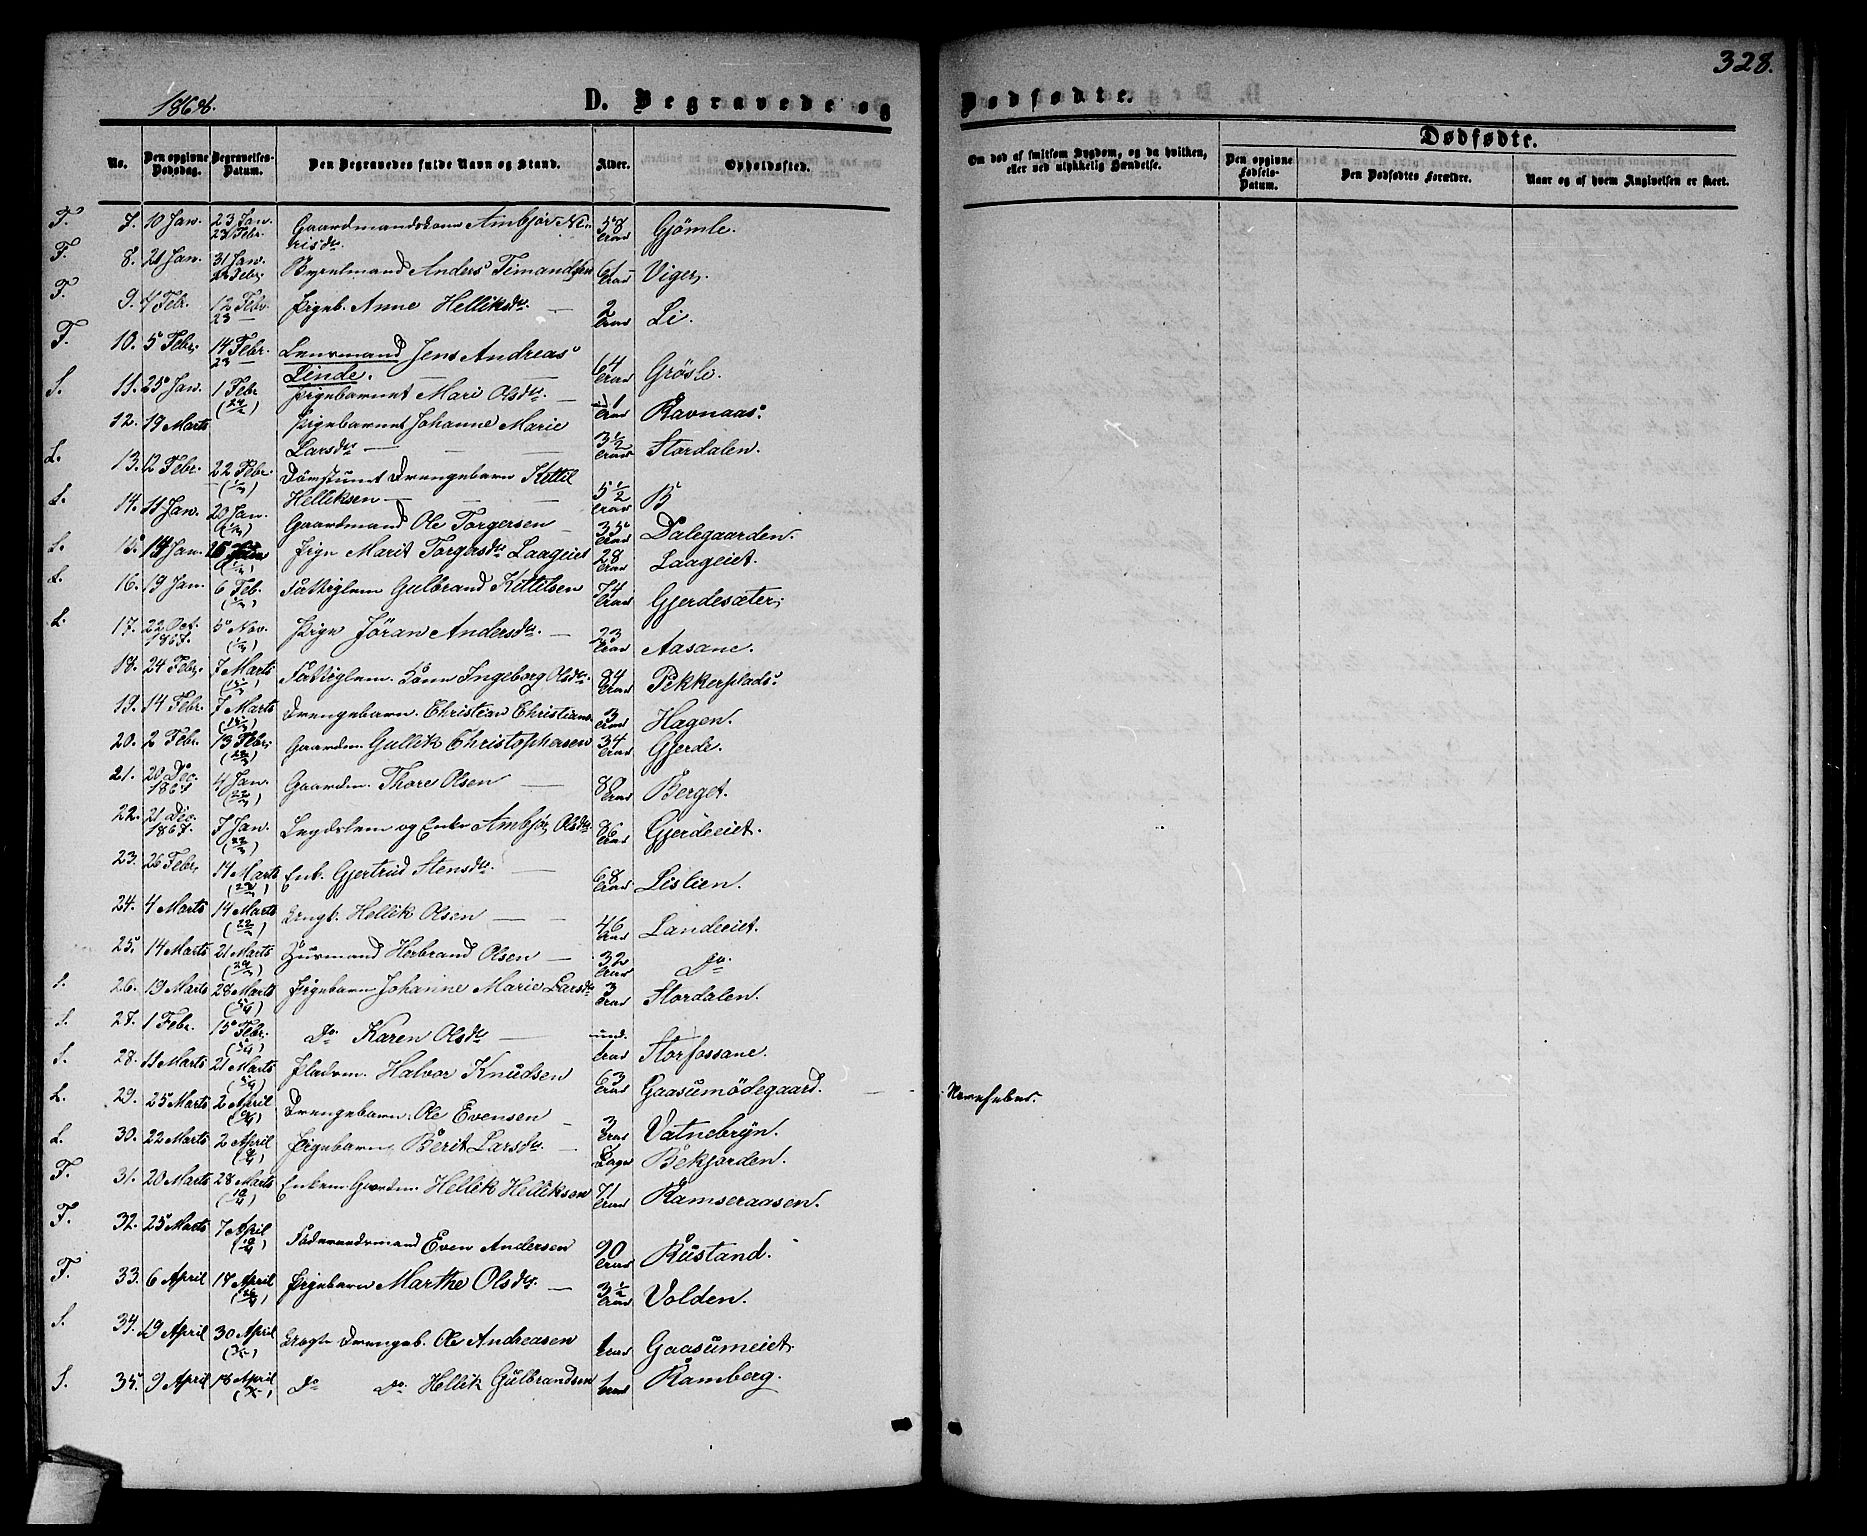 328.
1868.
D. Begravede og
Dødfødte.
No.
Den opgivne Dødsdag.
Begravelses-Datum.
Den Begravedes fulde Navn og Stand.
Alder.
Opholdssted.
Om død af smitsom Sygdom, og da hvilken, eller ved ulykkelig Hændelse.
Dødfødte.
Den opgivne Fødsels-Datum.
Den Dødfødtes Forældre.
Naar og af hvem Angivelsen er skeet.
F. 7. 10 Jan. 23 Jan. 23 Febr. Gaardmandskone Ambjør 58 Aar Gjømle.
F. 8. 21 Jan. 31 Jan. Anders 61 Aar Viger.
F. 9. 4 Febr. 12 Febr. 23 — Pigeb. Anne Helliksdr. — 2 Aar Li.
F. 10. 5 Febr. 14 Febr. 23 — Lensmand Jens Andreas
Linde. — 64 Aar Grøsli.
S. 11. 25 Jan. 1 Febr. Pigebarnet Mari Olsdr. — 1 Aar Ravnaas.
12. 19 Marts Pigebarnet Johanne Marie
Larsdr. — — — 3 1/2 Aar Stordalen.
L. 13. 12 Febr. 22 Febr. (1/3) Døvstumt Drengebarn Kittil
Helliksen — — — 5 1/2 Aar B
L. 14. 11 Jan. 20 Jan. (1/3) Gaardmand Ole Torgersen — 35 Aar Dalegaarden.
L. 15. 14 Jan. (1/3) Pige Marit Torgersdr. Laageiet 28 Aar Laageiet.
L. 16. 19 Jan. 6 Feb. (1/3) Fattiglem Gulbrand Kittilsen 74 Aar Gjerdesæter.
L. 17. 22 Oct. 1867. 5 Nov. (1/3) Pige Jøran Andersdr. — 23 Aar Aasane.
18. 24 Febr. 7 Marts (15/3) Fattiglem. Kone Ingeborg Olsdr. 84 Aar Pekkerplads.
19. 14 Febr. 7 Marts (15/3) Drengebarn. Christian Christians. 3 Aar Hagen.
20. 2 Febr. 13 Febr. (22/3) Gaardm. Gullik Christophersen 34 Aar Gjerde.
21. 20 Dec. 1867 4 Jan. (22/3) Gaardm. Thore Olsen — 8 Aar Berget.
22. 21 Dec. 1867. 7 Jan. (22/3) Legdslem og Enke Ambjør Olsdr. 86 Aar Gjerdeeiet.
23. 26 Febr. 14 Marts (22/3) Enk. Gjertrud Stensdr. — 68 Aar Lislien.
24. 4 Marts 14 Marts (22/3) Hellik Olsen — — 46 Aar Landeeiet.
25. 14 Marts 21 Marts (29/3) Huusmand Herbrand Olsen — 32 Aar Do
S. 26. 19 Marts 28 Marts (5/4) Pigebarn Johanne Marie Larsdr. 3 Aar Stordalen.
S. 27. 1 Febr. 15 Febr. (5/4) Do Karen Olsdr. — und. 1 Aar Storfossane.
S. 28. 11 Marts 21 Marts (5/4) Pladsm. Halvor Knudsen 63 Aar Gaasumødegaard. — Nervefeber.
L. 29. 25 Marts 2 April (9/4) Drengebarn. Ole Evensen — 3 Aar Vatnebryn.
L. 30. 22 Marts 2 April (9/4) Pigebarn Berit Larsdr. — Dage Bekjorden.
F. 31. 20 Marts 28 Marts (19/4) Enkem. Gaardm. Hellik Helliksen 71 Aar Ramseraasen.
F. 32. 25 Marts 7 April (19/4) Føderaadsmand Even Andersen 90 Aar Rustand.
F. 33. 6 April 17 April (26/4) Pigebarn Marthe Olsdr. — 3 1/2 Aar Volden.
S. 34. 19 April 30 April (3/5) Uægte Drengeb. Ole Andreasen 1 Aar Gaasumeiet.
S. 35. 9 April 18 April (3/5) Do Do Hellik Gulbrandsen 1 Aar Ramberg.